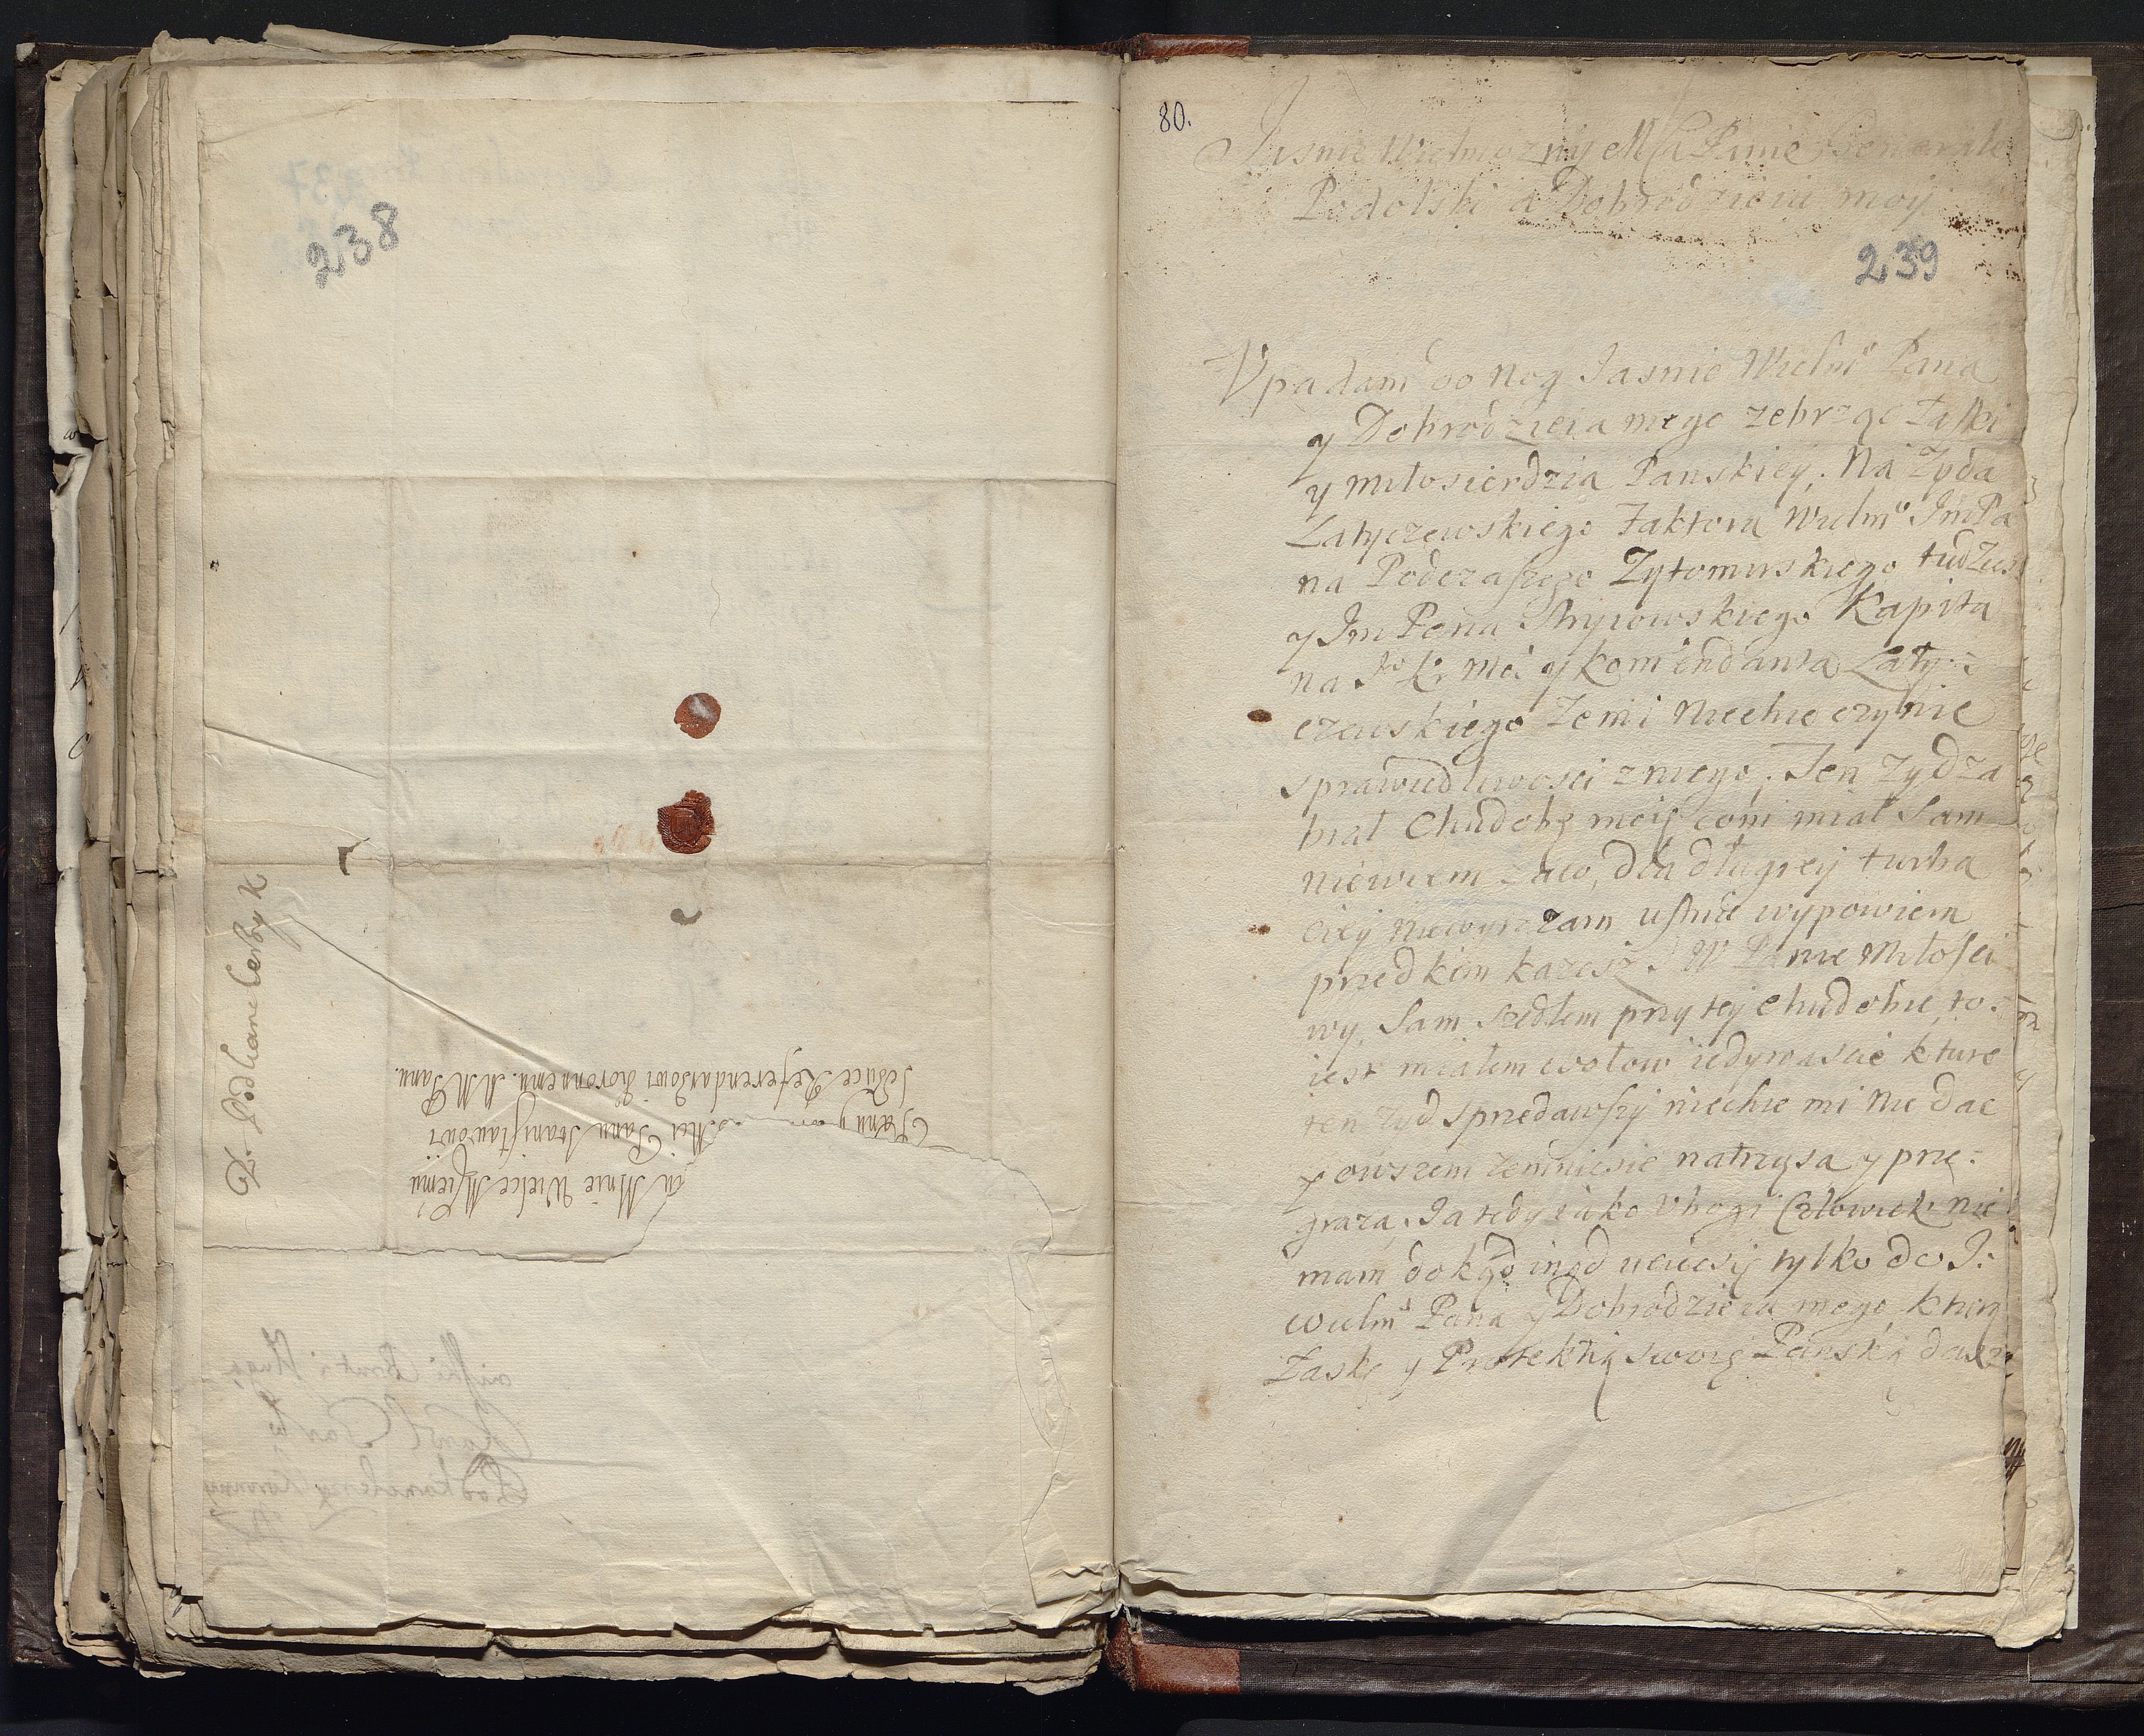 238
P. Podkanclerzy K
a Mnie Wielce Msciemu
Panu y Mci Panu Stanisławowi
Referendarzowi Koronnemu. M M Panu.
80.
Jasnie Wielmozny Mscia Panie Generale
Podolski a Dobrodzieiu moy
239
Vpadam do nog Jasnie Wielmo Pana
y Dobrodzieia mego zebrząc Łaski
y miłosierdzia Panskiey. Na Zyda
Latyczewskiego Faktora Wielmo JmPa
na Podczaszego Zytomirskiego tudziesz
y Jm Pana Kapita
na Jo K. Mci y Komendanta Laty:
czewskiego ze mi niechce czynic
sprawiedliwosci z niego. Ten zyd za
brał Chudobę moię com miał sam
niewiem zaco, dla długiey turba
ciey niewyrazam ustnie wypowiem
przed kim kazesz J W Panie Miłosci
wy. Sam szedłem przy tey chudobie, to:
iest miałem wołow iedynascie kture
ten zyd sprzedawszy niechce mi nic dac
y owszem zemniesie natrząsa y prze:
graza. Ja tedy iako Vbogi Człowiek nie
mam dokąd inąd uciecsię tylko do J:
wielmo Pana y Dobrodzieia mego, ktury
Łaskę y Protektią swoię Panską dasz